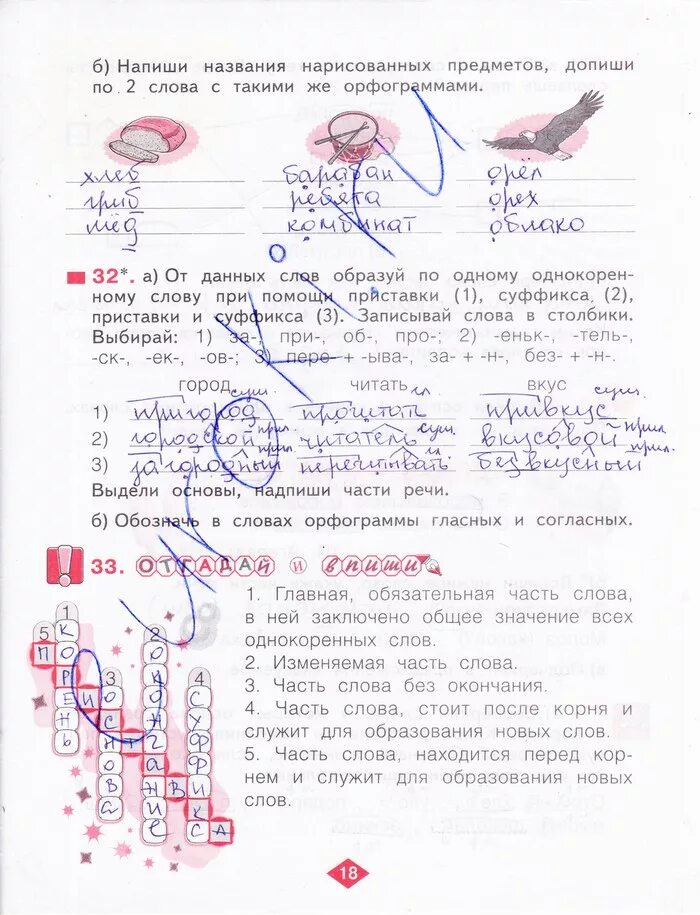 б) Напиши названия нарисованных предметов, допиши
по 2 слова с такими же орфограммами.
хлеб барабан орёл
гриб ребята орех
мёд комбинат облако
32*. а) От данных слов образуй по одному однокорен-
ному слову при помощи приставки (1), суффикса, (2),
приставки и суффикса (3). Записывай слова в столбики.
Выбирай: 1) за-, при-, об-, про-; 2) -еньк-, -тель-,
-ск-, -ек-, -ов-; 3) пере- + -ыва-, за- + -н-, без- + -н-.
город сущ. читать гл вкус сущ.
1) пригород прочитать привкус
2) городской прил читатель сущ. вкусовой прил.
3) загородный прил. перечитывать гл безвкусный прил.
Выдели основы, надпиши части речи.
б) Обозначь в словах орфограммы гласных и согласных.
33. ОТГАДАЙ И ВПИШИ
1. Главная, обязательная часть слова,
в ней заключено общее значение всех
однокоренных слов.
2. Изменяемая часть слова.
3. Часть слова без окончания.
4. Часть слова, стоит после корня и
служит для образования новых слов.
5. Часть слова, находится перед кор-
нем и служит для образования новых
слов.
1 КОРЕНЬ
2 ОКОНЧАНИЕ
3 ОСНОВА
4 СУФФИКС
5 ПРИСТАВКА
18